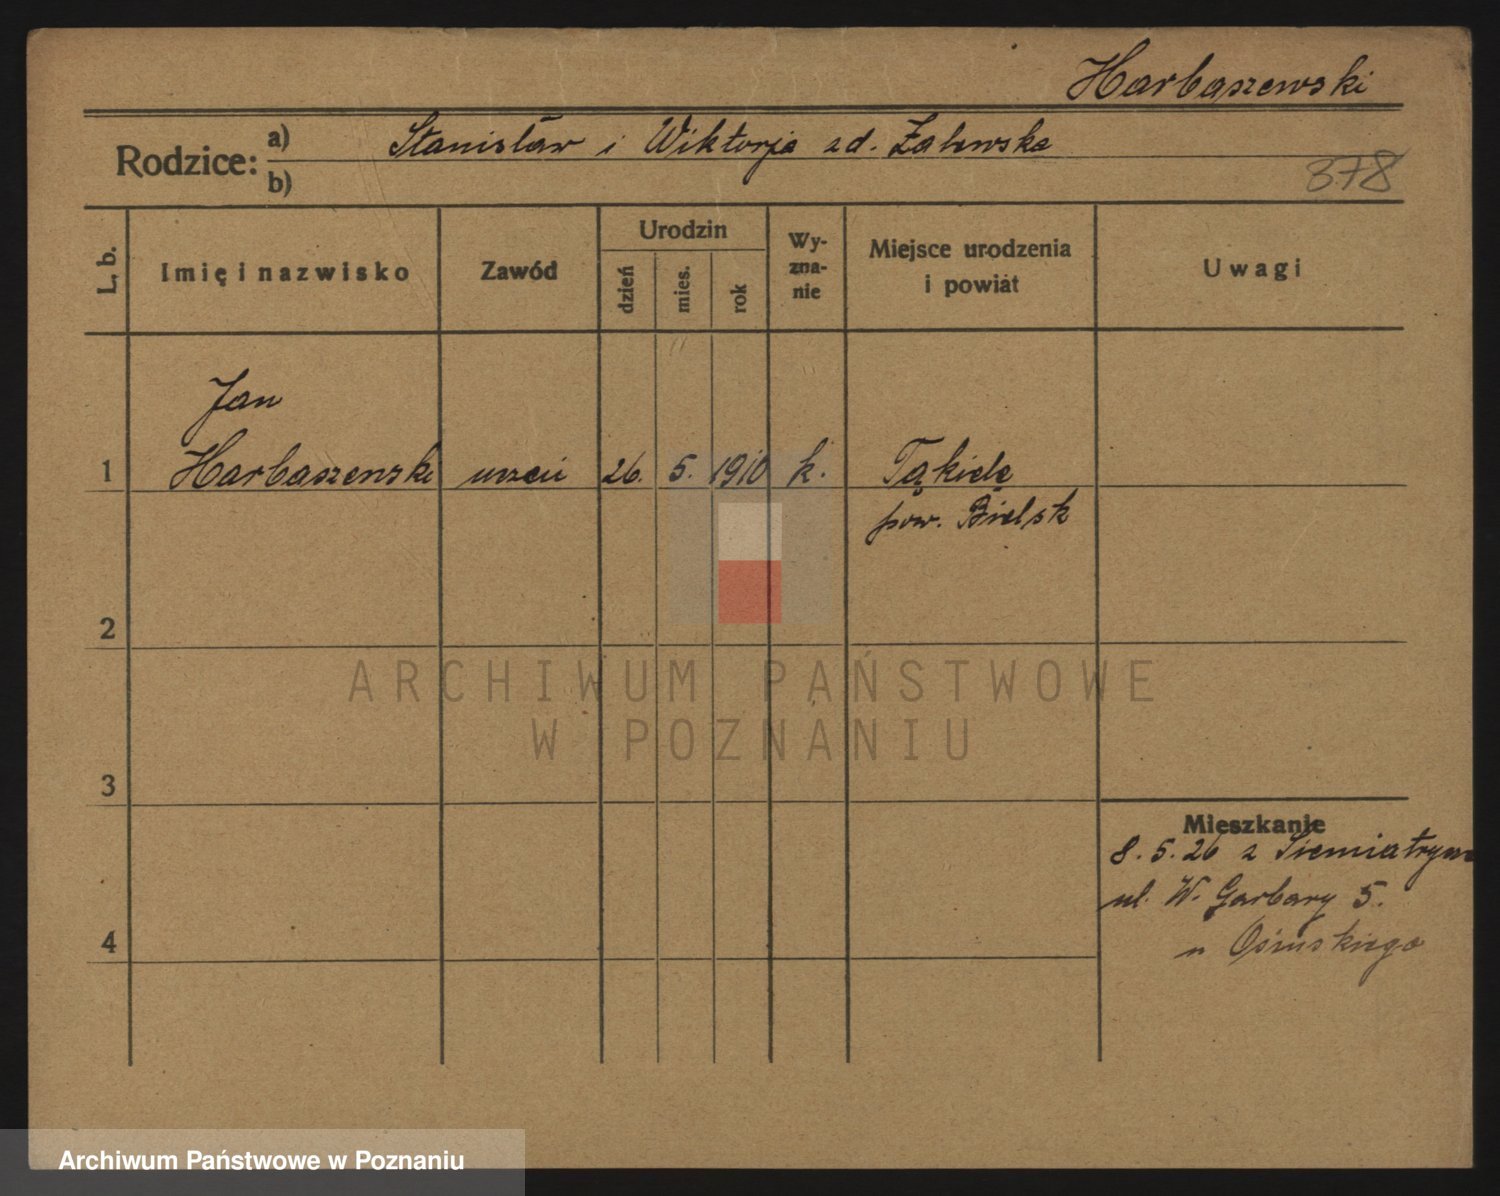 Harbaszewski
Rodzice: a) Stanisław i Wiktorja zd. Zalewska
b)
378
L. b.
Imię i nazwisko
Zawód
Urodzin
dzień
mies.
rok
Wy-
zna-
nie
Miejsce urodzenia
i powiat
Uwagi
Jan
1 Harbaszewski uczeń 26. 5. 1910 k.
pow. Bielsk
2
ARCHIWUM PAŃSTWOWE
W POZNANIU
3
Mieszkanie
8. 5. 26 z
ul. W. Garbary 5.
4
u Osinskiego
Archiwum Państwowe w Poznaniu